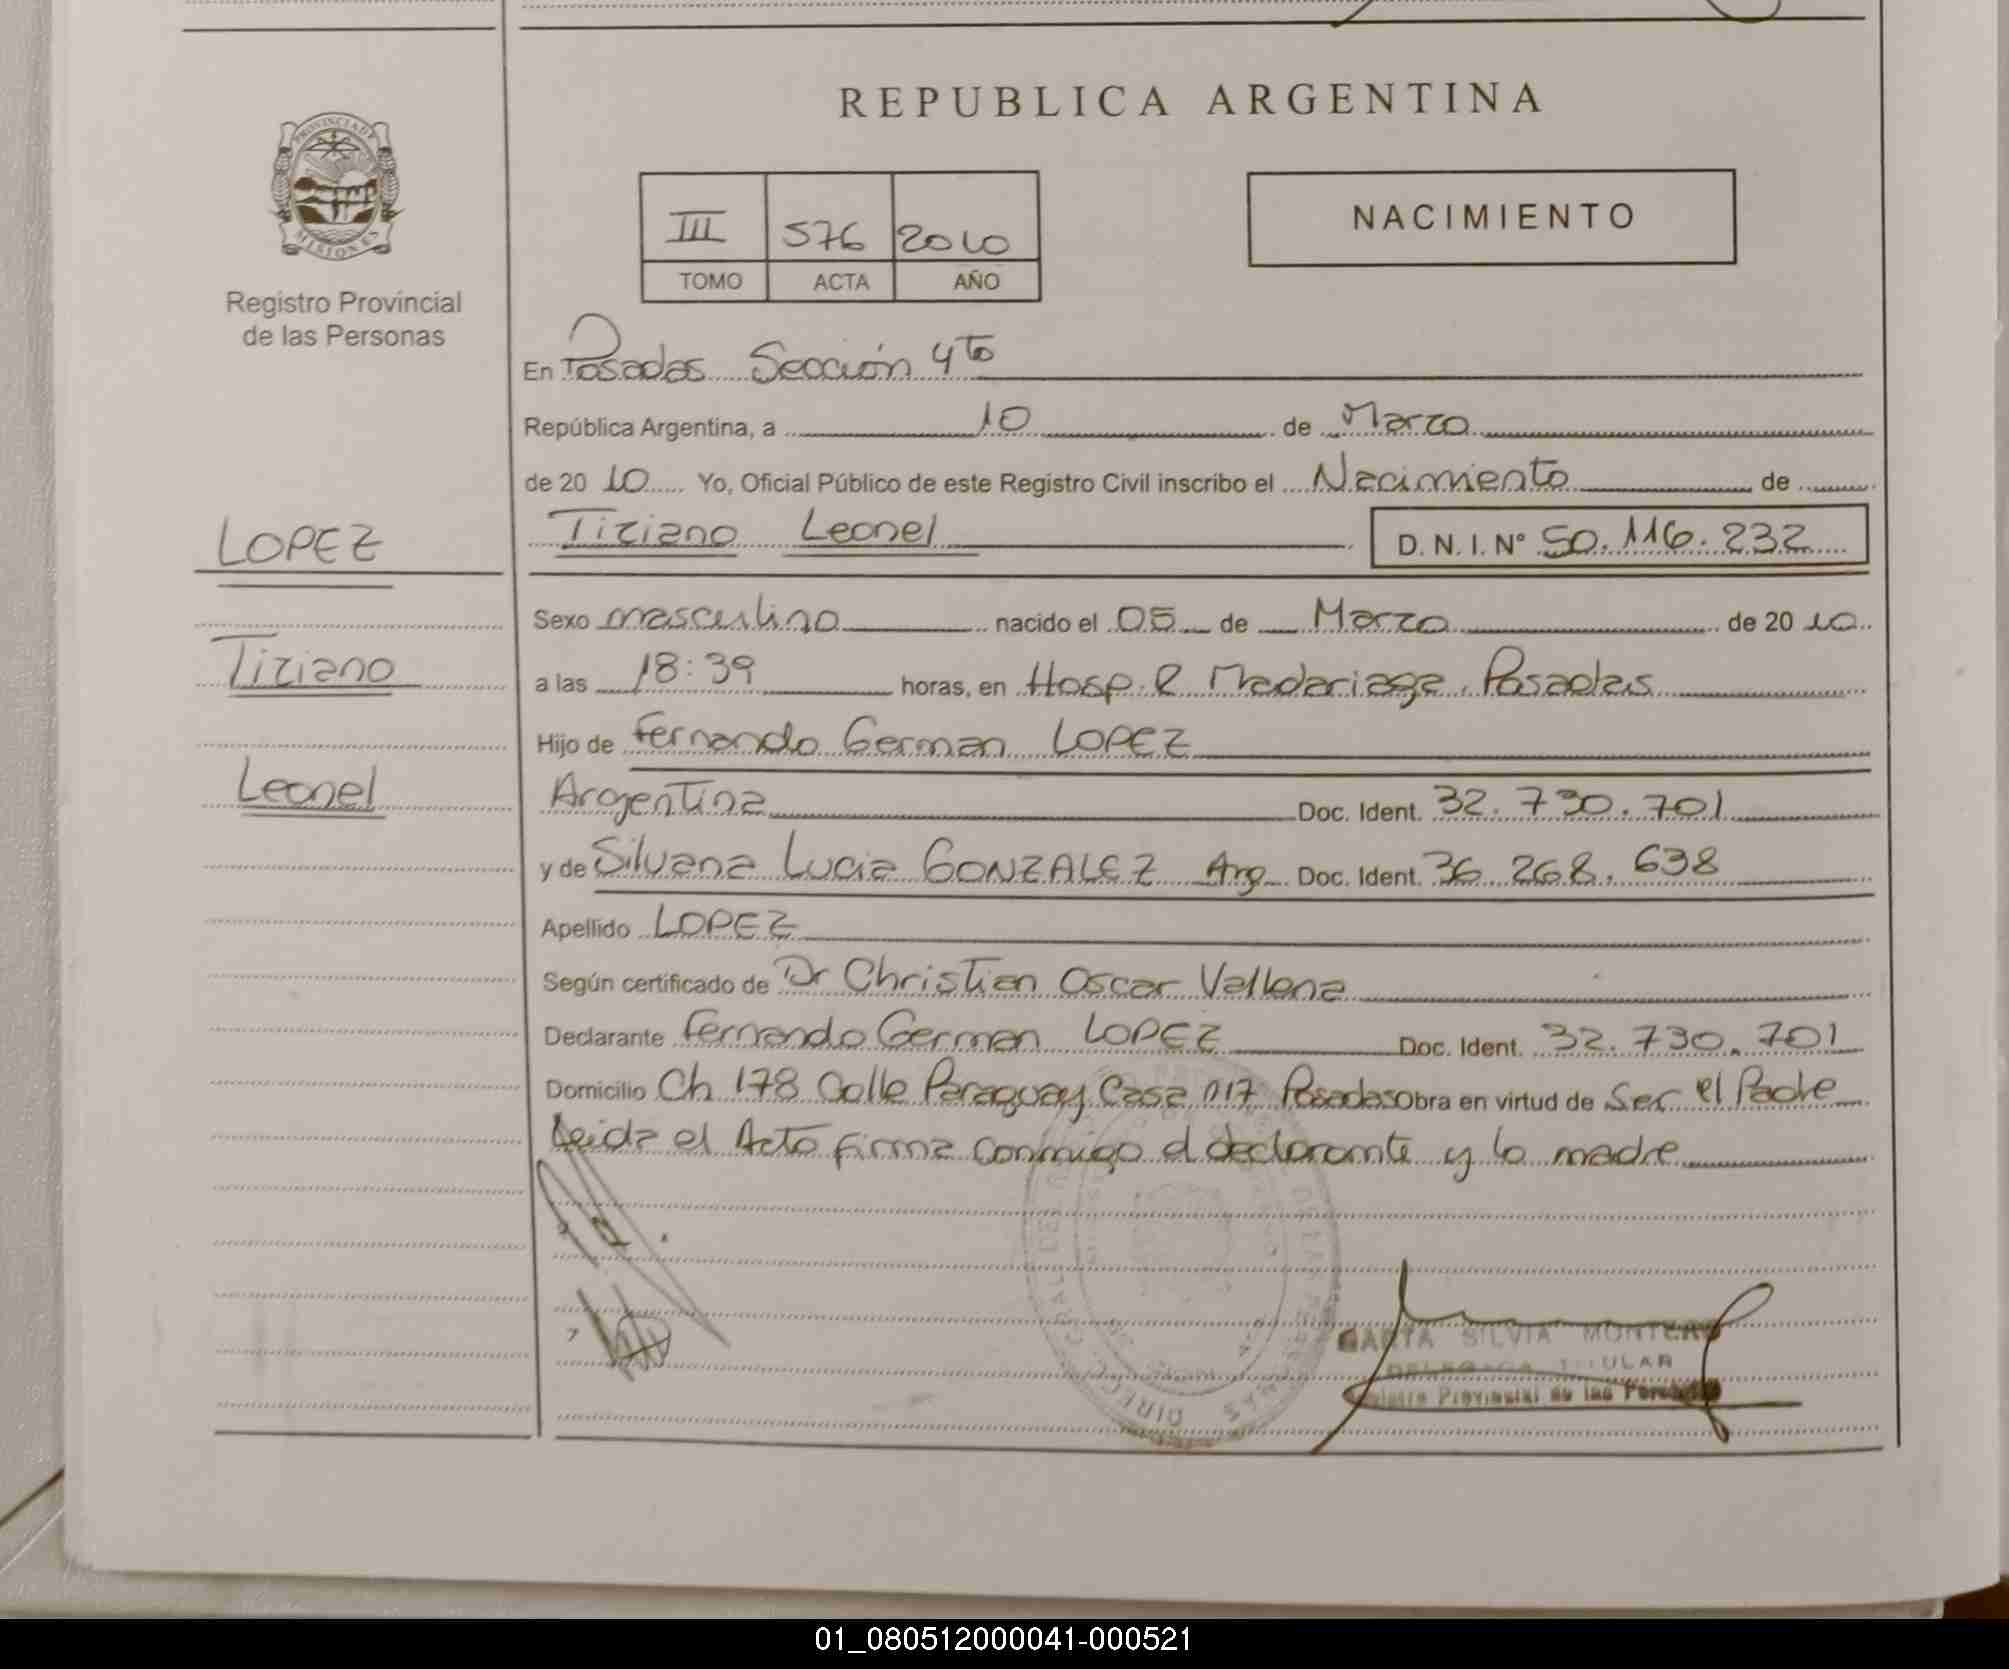 REPUBLICA ARGENTINA
PROVINCIA DE
MISIONES
Registro Provincial
de las Personas
III 576 2010
TOMO ACTA AÑO
NACIMIENTO
En Posadas Sección 4to
República Argentina, a 10 de Marzo
de 2010 Yo, Oficial Público de este Registro Civil inscribo el Nacimiento de
LOPEZ
Tiziano
Leonel
Tiziano Leonel D.N.I. N° 50.116.232
Sexo masculino nacido el 05 de Marzo de 2010
a las 18:39 horas, en Hosp. R Madariaga. Posadas
Hijo de Fernando German LOPEZ
Argentina Doc. Ident. 32.730.701
y de Silvana Lucia GONZALEZ Arg Doc. Ident. 36.268.638
Apellido LOPEZ
Según certificado de Dr Christian Oscar Vallena
Declarante Fernando German LOPEZ Doc. Ident. 32.730.701
Domicilio Ch 178 Calle Paraguay Casa n17 Posadas obra en virtud de Ser el Padre
Leida el Acto firma conmigo el declarante y la madre
SILVIA MONTERO
TITULAR
Provincial de las Personas
01_080512000041-000521